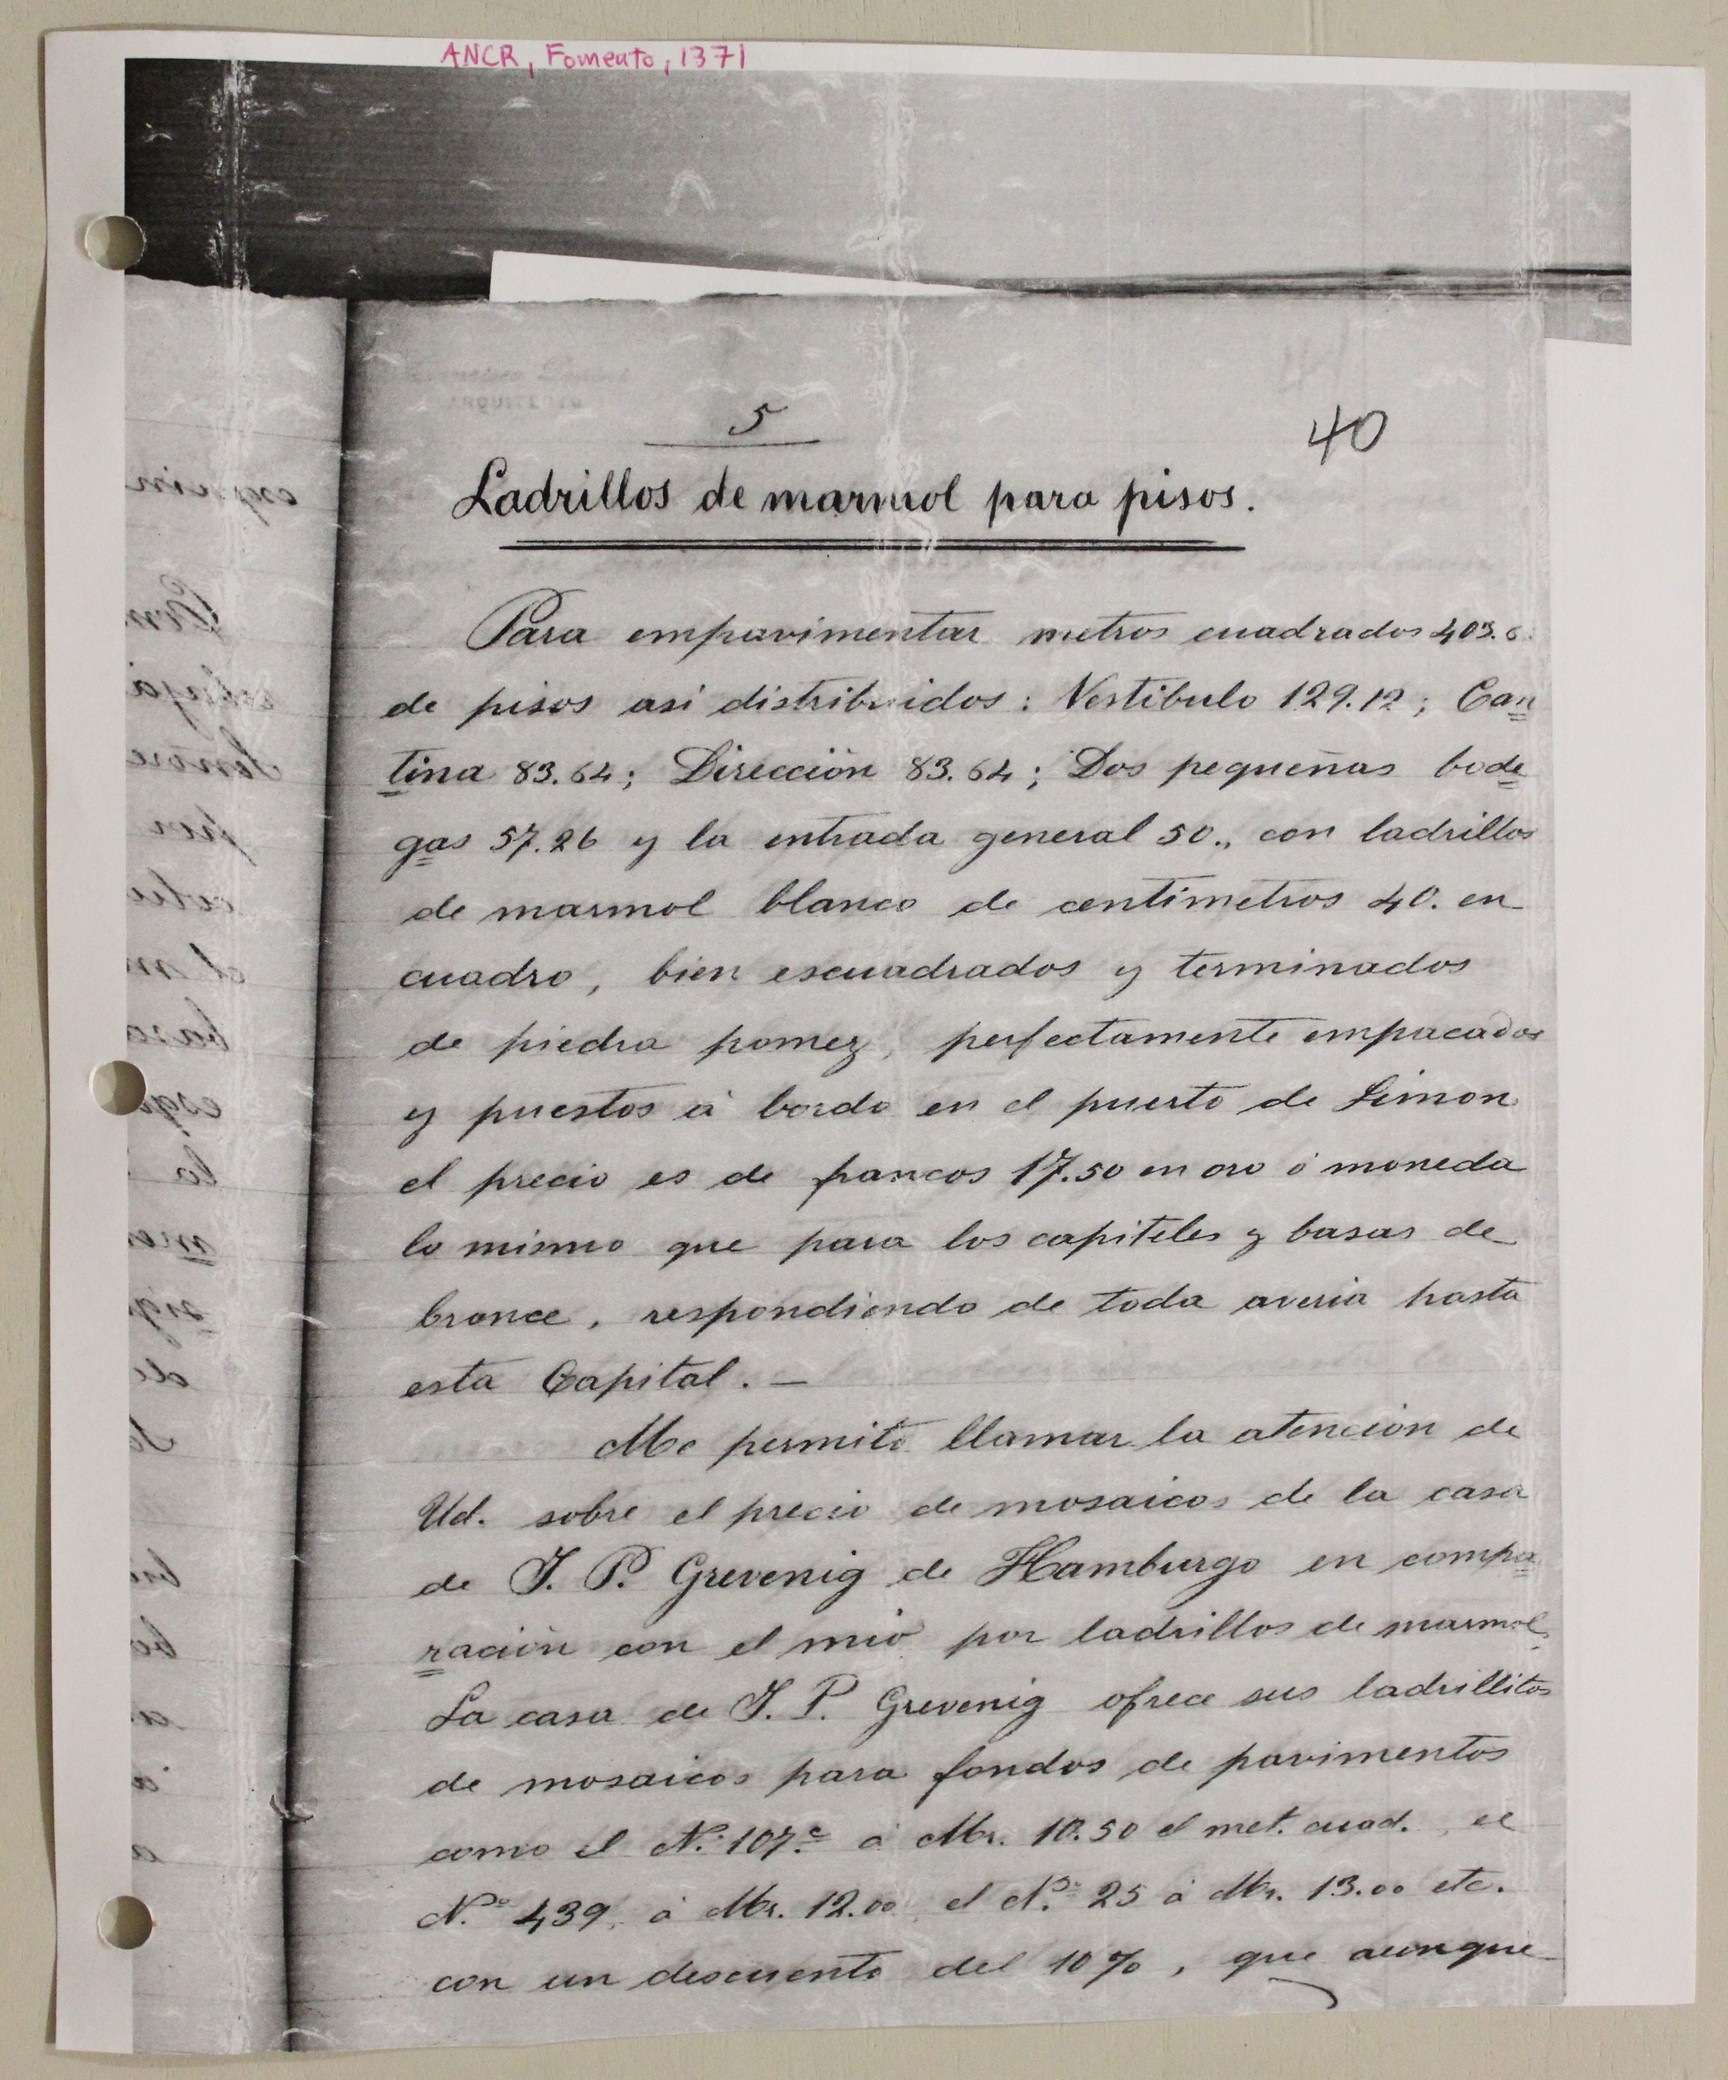 ANCR, Fomento, 1371
ARQUITECTO
5
40
Ladrillos de marmol para pisos.
Para empavimentar metros cuadrados 403.6
de pisos asi distribuidos: Vestibulo 129.12; Can
tina 83.64; Dirección 83.64; Dos pequeñas bode
gas 57.26 y la entrada general 50., con ladrillos
de marmol blanco de centimetros 40. en
cuadro, bien escuadrados y terminados
de piedra pomez, perfectamente empacados
y puestos á bordo en el puerto de Limon
el precio es de francos 17.50 en oro ó moneda
lo mismo que para los capiteles y basas de
bronce, respondiendo de toda averia hasta
esta Capital. —
Me permito llamar la atención de
Ud. sobre el precio de mosaicos de la casa
de J. P. Grevenig de Hamburgo en compa
ración con el mio por ladrillos de marmol.
La casa de J. P. Grevenig ofrece sus ladrillitos
de mosaicos para fondos de pavimentos
como el No. 107.c á Mr. 10.50 el met. cuad., el
No. 439, á Mr. 12.00 el No. 25 á Mr. 13.00 etc.
con un descuento del 10%, que aunque